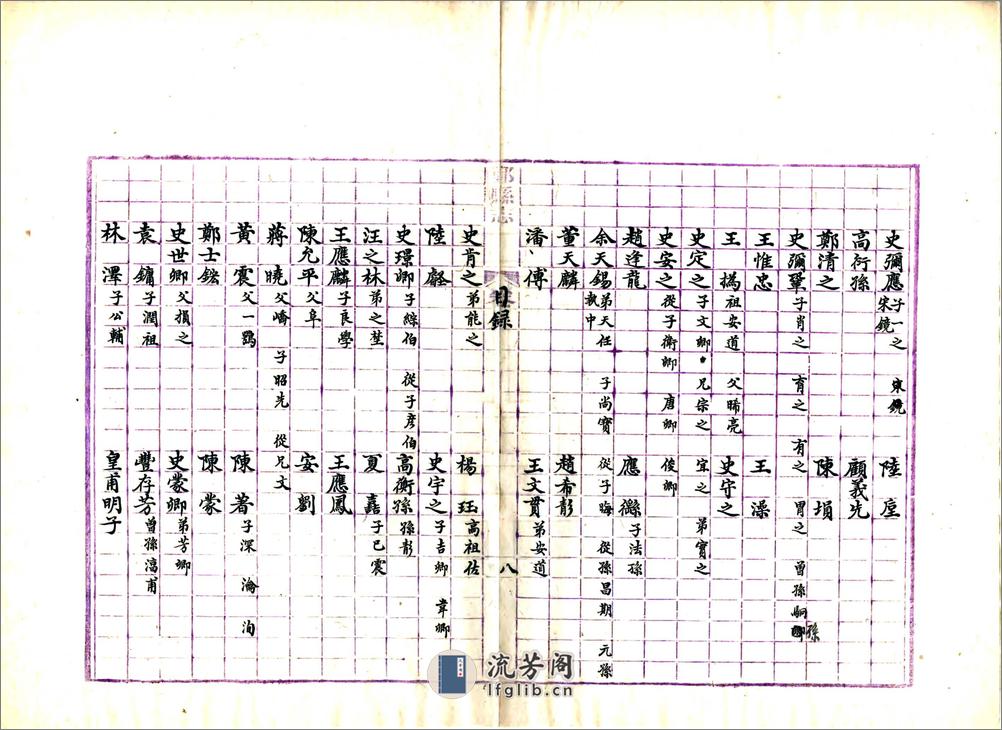 史彌應 子一之 宋鏡 宋鏡 陸垕
高衍孫 顧義先
鄭清之 陳塤
史彌鞏 子肖之 有之 有之 胄之 曾孫駉卿 孫
王惟忠 王澡
王撝 祖安道 父晞亮 史守之
史定之 子文卿 兄宗之 宜之 弟實之
史安之 從子衛卿 唐卿 俊卿
趙逢龍 應㒡 子法孫
余天錫 弟天任 執中 子尚賓 從子晦 從孫昌期 元孫
董天麟 趙希彭
潘傳 王文貫 弟安道
鄞縣志
目錄
八
史肯之 弟能之 楊珏 高祖佐
陸 史宇之 子吉卿 韋卿
史璟卿 子綜伯 從子彥伯 高衡孫 孫彭
汪之林 弟之埜 夏 子已震
王應麟 子良學 王應鳳
陳允平 父阜 安劉
蔣曉 父嶠 子昭先 從兄文
黃震 父一鶚 陳著 子深 瀹 洵
鄭士鋐 陳蒙
史世卿 父損之 史蒙卿 弟芳卿
袁鏞 子潤祖 豐存芳 曾孫滆甫
林澤 子公輔 皇甫明子
流芳阁
lfglib.cn